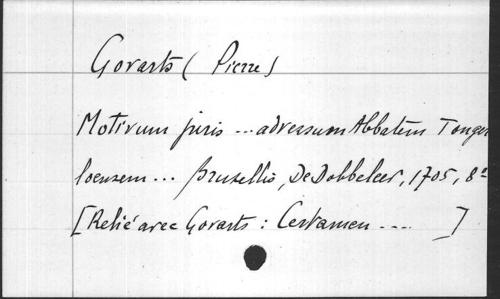 Govarts ( Pierre )
Motivum juris ... adversum Abbatem Tonger
loensem ... Bruxellis, De Dobbeleer, 1705, 8º
[Relié avec Govarts : Certamen .... ]